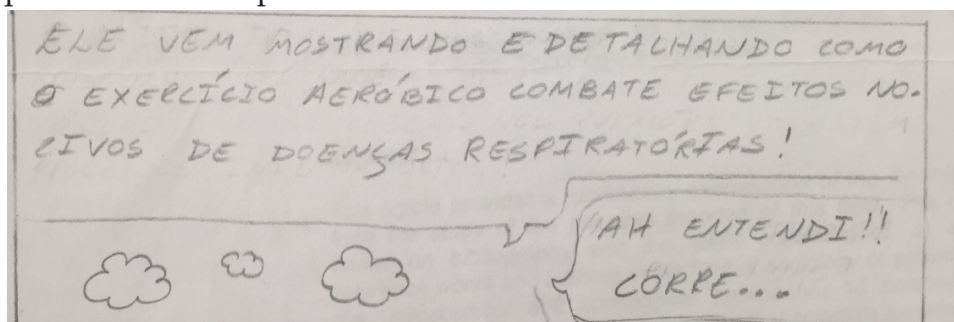 ELE VEM MOSTRANDO E DETALHANDO COMO
O EXERCÍCIO AERÓBICO COMBATE EFEITOS NO-
CIVOS DE DOENÇAS RESPIRATÓRIAS!
AH ENTENDI!!
CORRE...